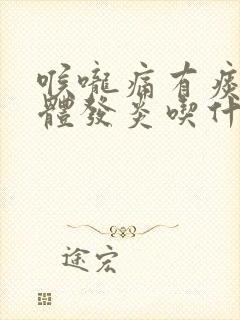 喉嚨痛有痰
體發炎喫什
途宏